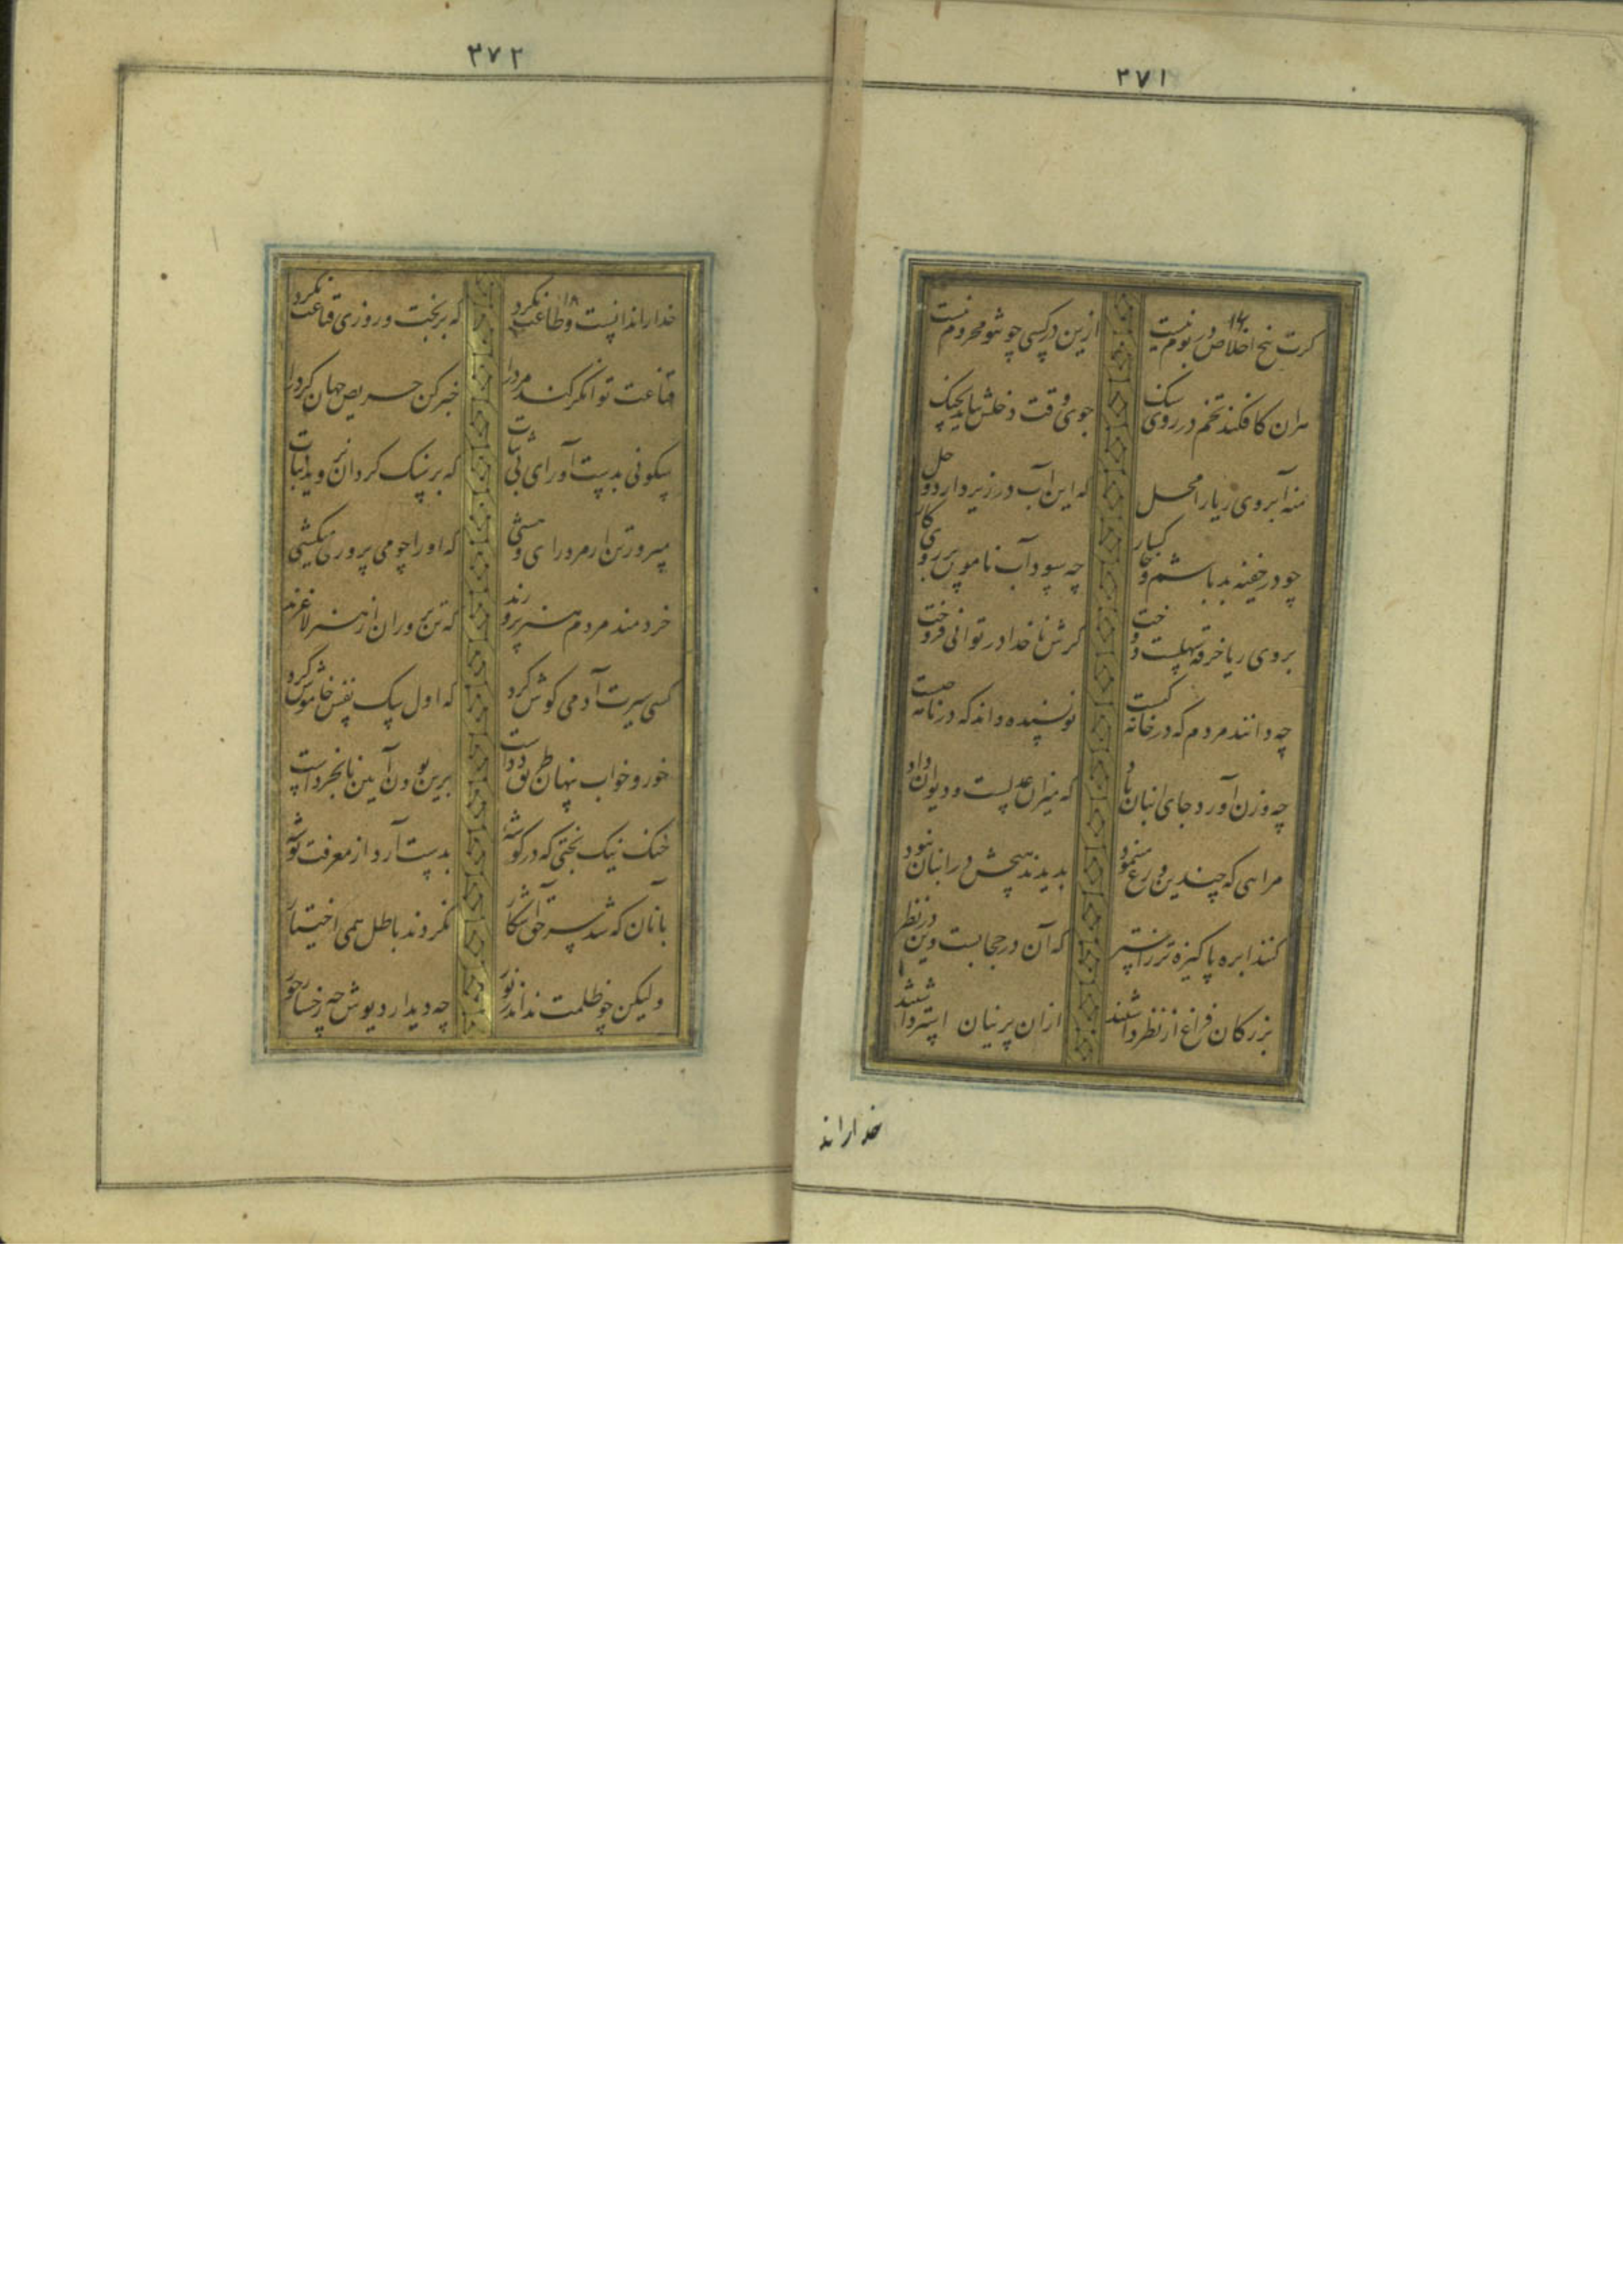 ۳۷۱
۱۶
کرت بیخ اخلاص در بوم نیست ازین در کسی چو تو محروم نیست
هران کافکند تخم در روی سنک جوی وقت دخلش نیاید بچنک
منه آبروی ریا را محل که این آب در زیر دارد وحل
چو در خفیه بد باشم و خاکسار چه سود آب ناموس بر روی کار
بروی ریا خرقه سهلست دوخت کرش با خدا در توانی فروخت
چه دانند مردم که در خانه کیست نویسنده داند که در نامه چیست
چه وزن آورد جای انبان باد که میزان عدلست و دیوان داد
مرایی که چندین ورع مینمود بدیدند هیچش در انبان نبود
کنند ابره پاکیزه تر ز استر که آن در حجابست و این در نظر
بزرکان فراغ از نظر داشتند ازان پرنیان استر داشتند
خدا راند
۳۷۲
۱۸
خدا را ندانست و طاعت نکرد که بر بخت و روزی قناعت نکرد
قناعت توانکر کند مرد را خبر کن حریص جهان کرد را
سکونی بدست آور ای بی ثبات که بر سنک کردان نروید نبات
مپرور تن ار مرد رای و هشی که او را چو می پروری میکشی
خردمند مردم هنر پرورند که تن پروران از هنر لاغرند
کسی سیرت آدمی کوش کرد که اول سک نفس خاموش کرد
خور و خواب تنها طریق دداست برین بودن آیین نابخرداست
خنک نیک بختی که در کوشه بدست آرد از معرفت توشه
بانان که شد سر حق آشکار نکردند باطل همی اختیار
ولیکن چو ظلمت نداند ز نور چه دیدار دیوش چه رخسار حور